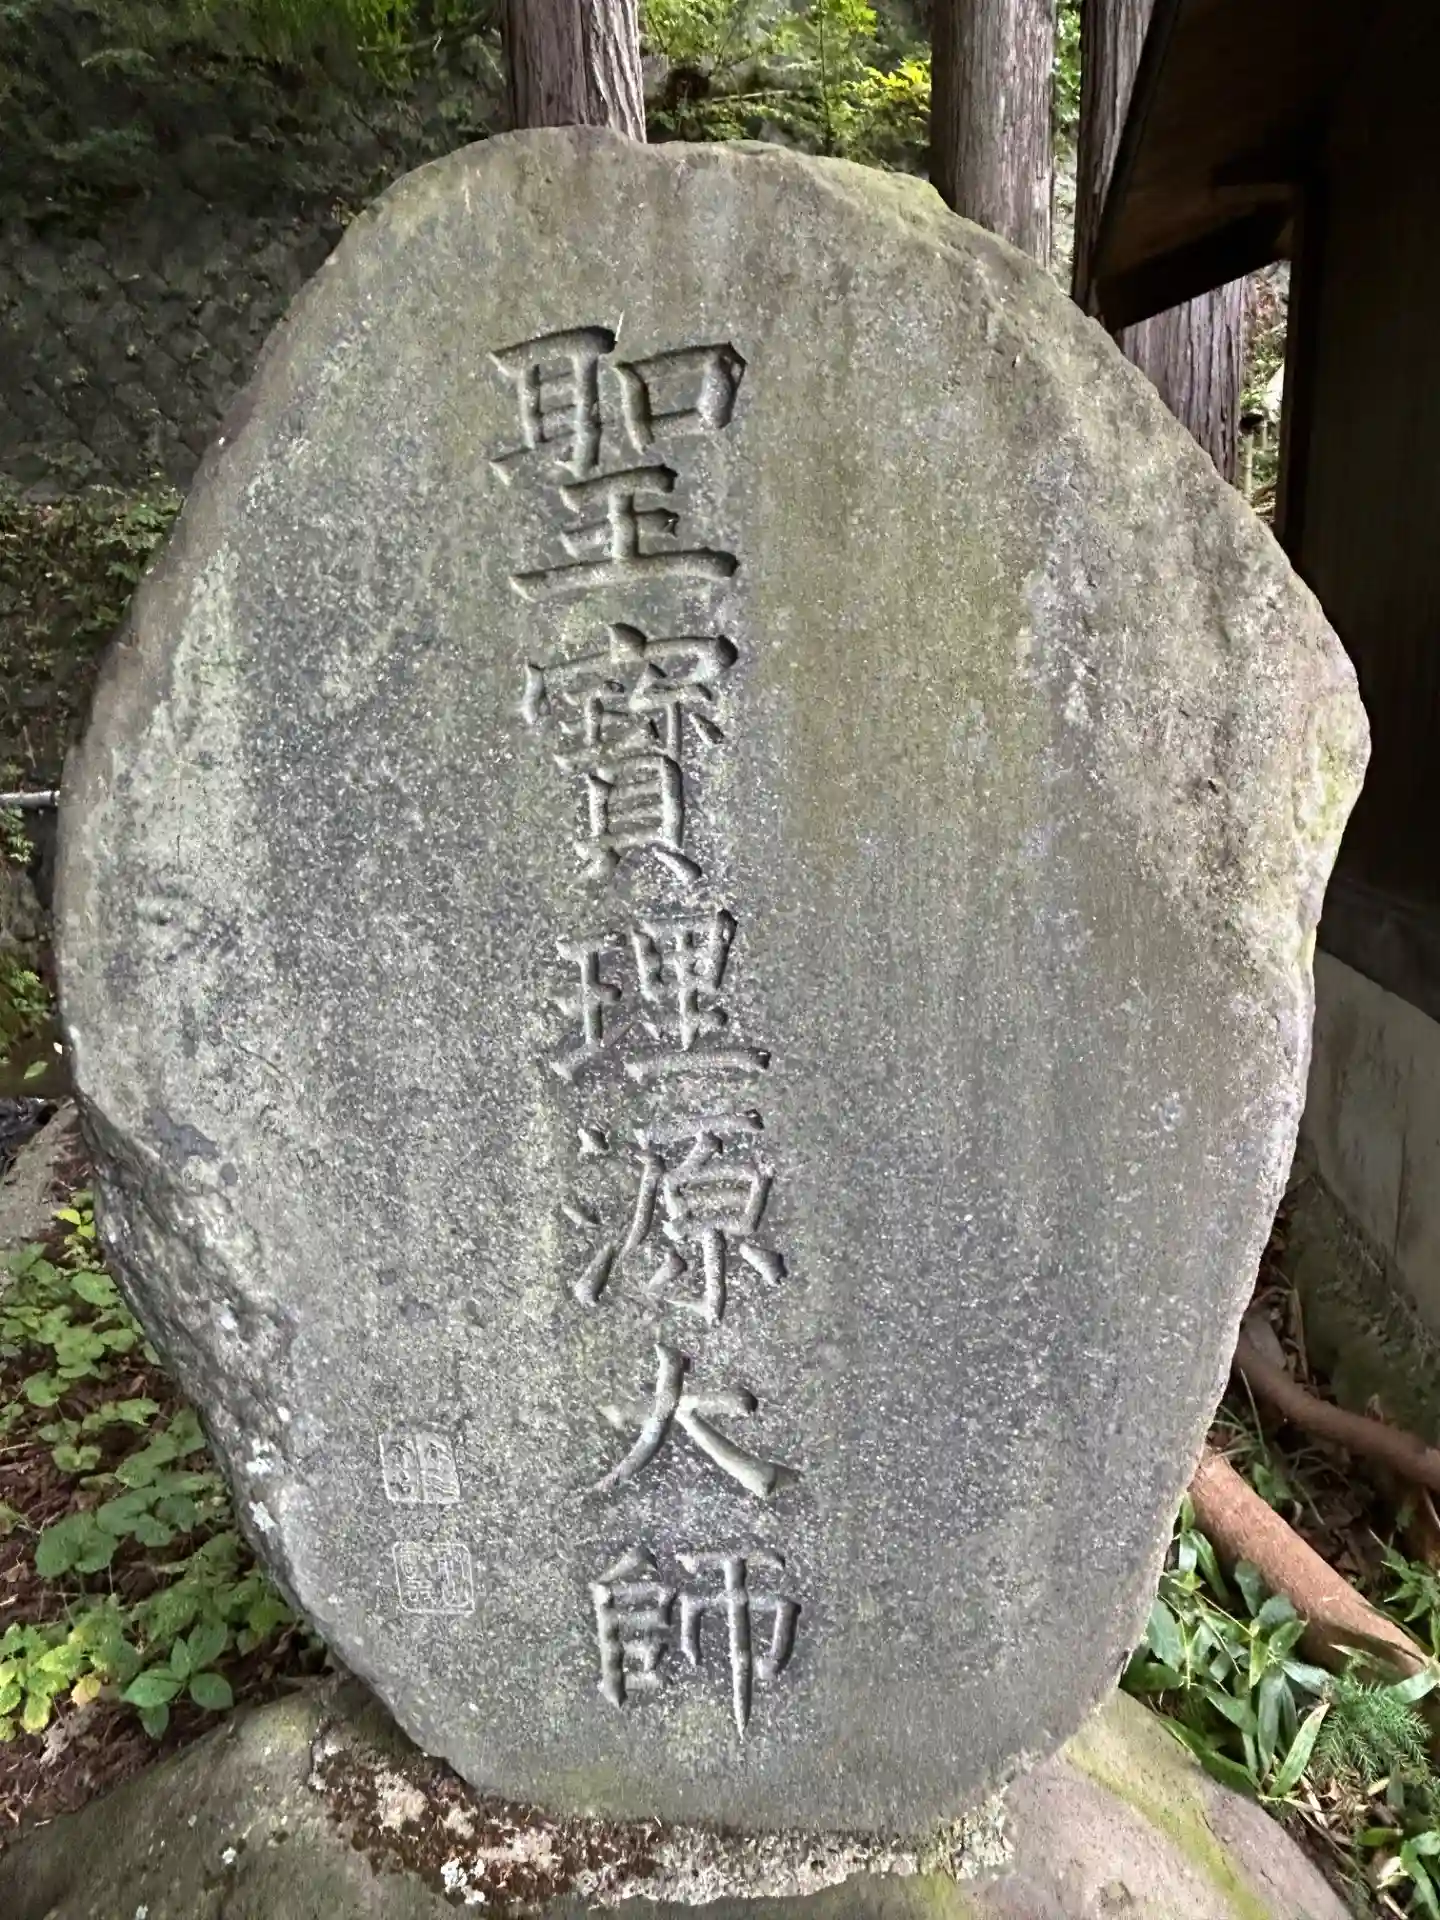 聖寳理源大師